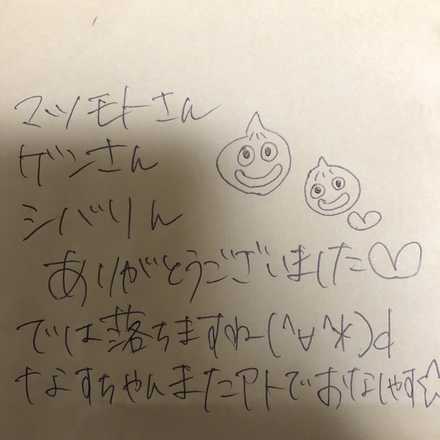 マツモトさん
ゲンさん
シバりん
ありがとうございました♡
では落ちますねー(^∀^*)d
なすちゃんまたアトでおなしゃす☆